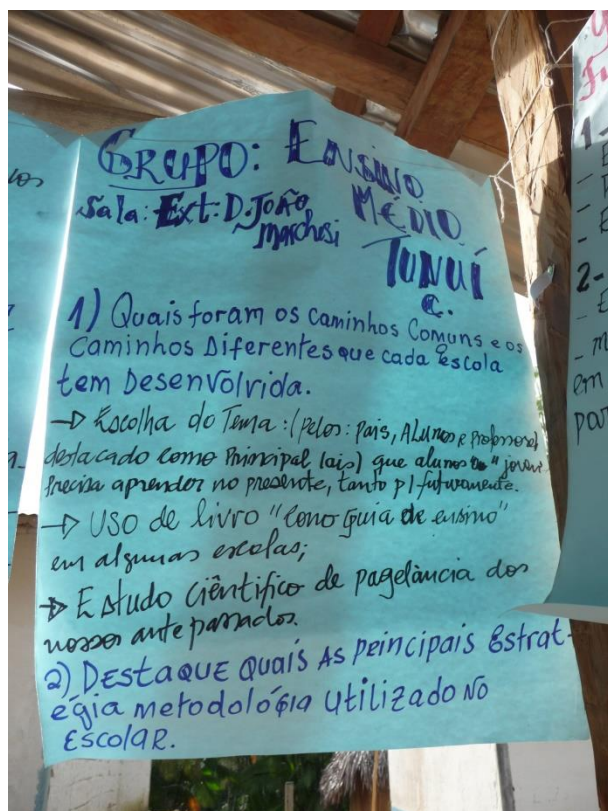 GRUPO: ENSINO
MÉDIO
Sala: Ext: D. João
Marchesi
TUNUÍ
C.
1) Quais foram os caminhos Comuns e os
Caminhos Diferentes que cada escola
tem Desenvolvida.
→ Escolha do Tema: (pelos: pais, Alunos e Professores)
destacado como Principal (ais) que alunos "jovem"
precisa aprender no presente, tanto p/ futuramente.
→ USO de livro "como guia de ensino"
em algumas escolas;
→ Estudo Ciêntifico de pagelância dos
nossos antepassados.
2) DESTAQUE QUAIS AS PRINCIPAIS Estrat-
égia metodológia utilizado NO
ESCOLAR.
1-
2-
em
par